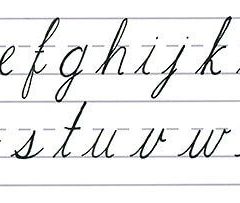 efghijk
stuvw